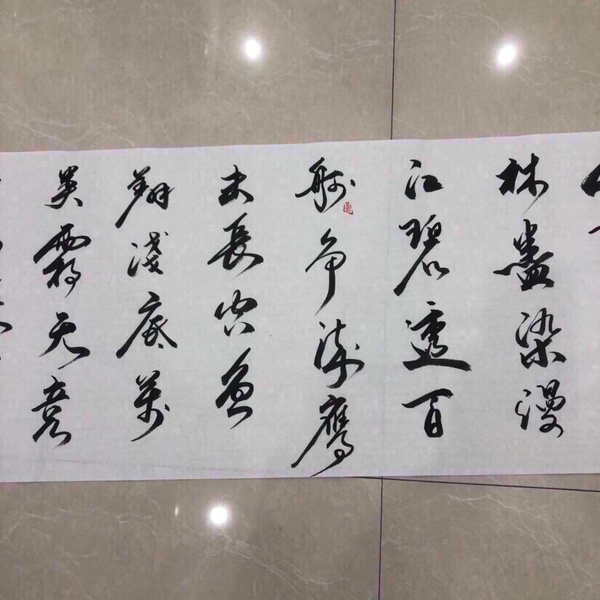 林盡染漫
江碧透百
舸争流鹰
击長空鱼
翔淺底萬
类霜天竞